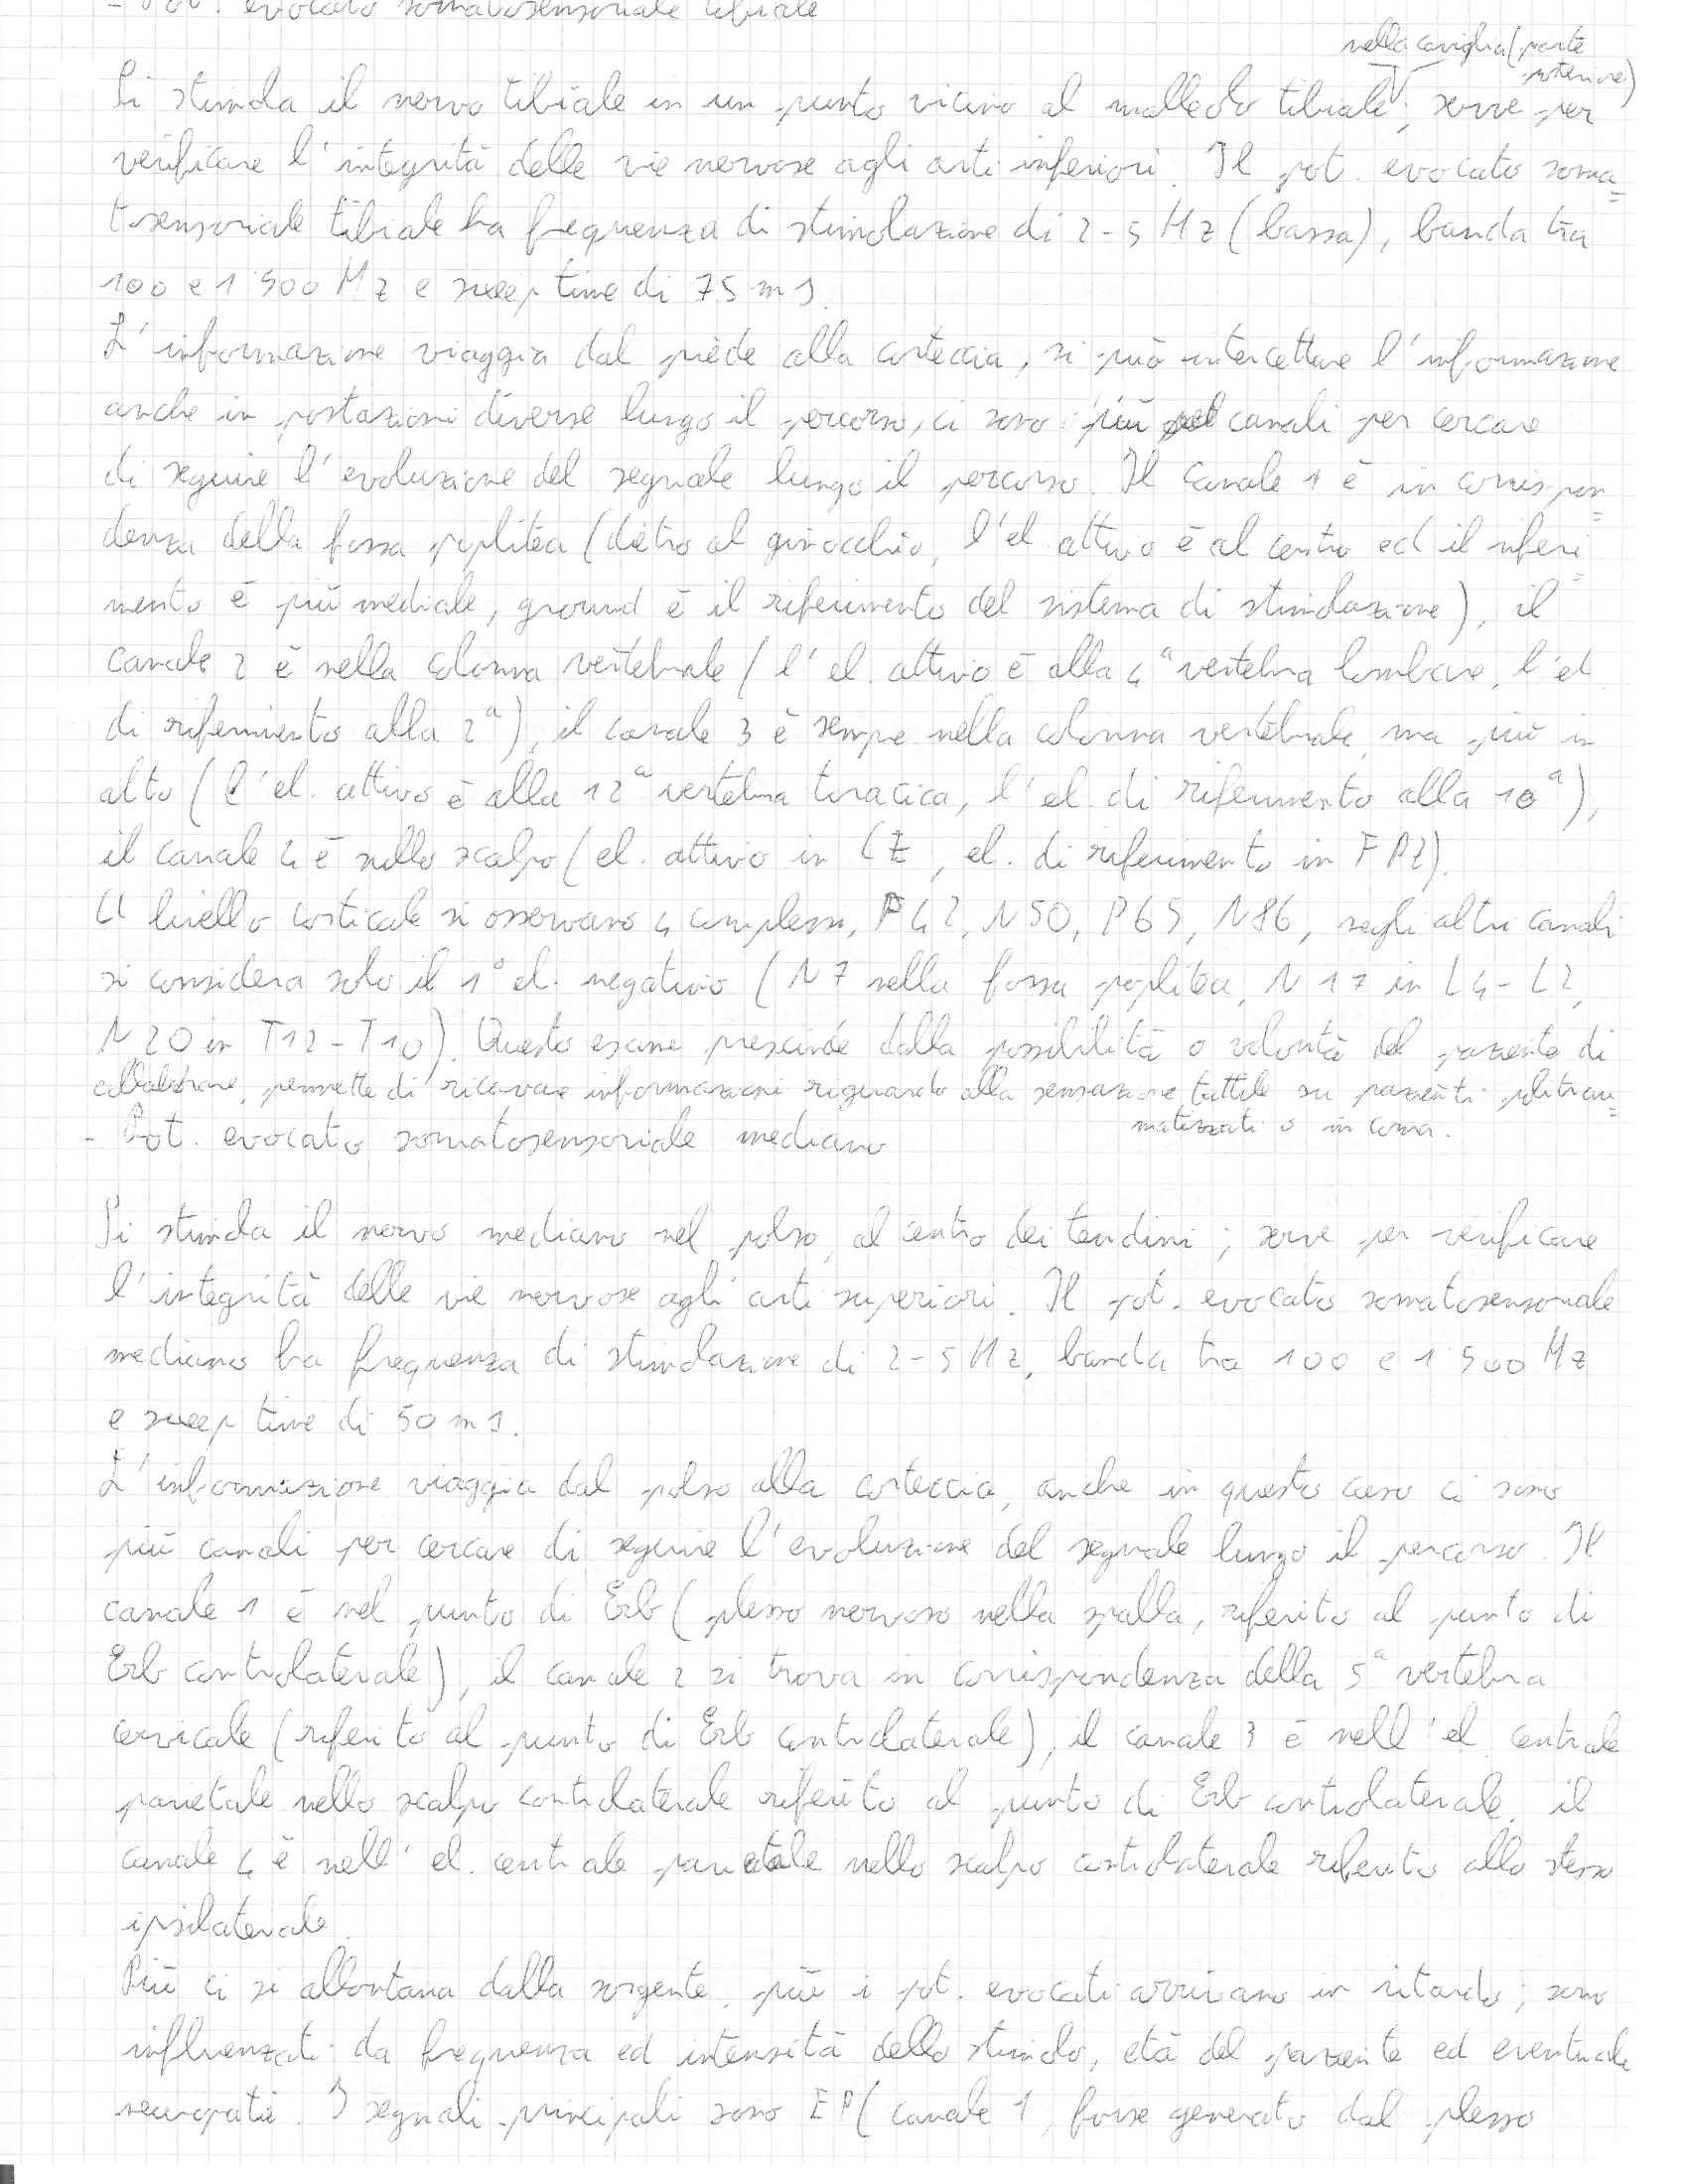 - Pot. evocato somatosensoriale tibiale
nella caviglia (parte
posteriore)
Si stimola il nervo tibiale in un punto vicino al malleolo tibiale; serve per
verificare l'integrità delle vie nervose agli arti inferiori. Il pot. evocato soma=
tosensoriale tibiale ha frequenza di stimolazione di 2-5 Hz (bassa), banda tra
100 e 1'500 Hz e sweep time di 75 ms.
L'informazione viaggia dal piede alla corteccia, si può intercettare l'informazione
anche in postazioni diverse lungo il percorso, ci sono più canali per cercare
di seguire l'evoluzione del segnale lungo il percorso. Il canale 1 è in corrispon=
denza della fossa poplitea (dietro al ginocchio, l'el. attivo è al centro ed il riferi=
mento è più mediale, ground è il riferimento del sistema di stimolazione), il
canale 2 è nella colonna vertebrale (l'el. attivo è alla 4ª vertebra lombare, l'el.
di riferimento alla 2ª), il canale 3 è sempre nella colonna vertebrale, ma più in
alto (l'el. attivo è alla 12ª vertebra toracica, l'el. di riferimento alla 10ª),
il canale 4 è sullo scalpo (el. attivo in CZ, el. di riferimento in FPZ).
A livello corticale si osservano 4 complessi, P42, N50, P65, N86, negli altri canali
si considera solo il 1° el. negativo (N7 nella fossa poplitea, N17 in L4-L2,
N20 in T12-T10). Questo esame prescinde dalla possibilità o volontà del paziente di
collaborare, permette di ricavare informazioni riguardo alla sensazione tattile su pazienti politrau=
matizzati o in coma.
- Pot. evocato somatosensoriale mediano
Si stimola il nervo mediano nel polso, al centro dei tendini; serve per verificare
l'integrità delle vie nervose agli arti superiori. Il pot. evocato somatosensoriale
mediano ha frequenza di stimolazione di 2-5 Hz, banda tra 100 e 1'500 Hz
e sweep time di 50 ms.
L'informazione viaggia dal polso alla corteccia, anche in questo caso ci sono
più canali per cercare di seguire l'evoluzione del segnale lungo il percorso. Il
canale 1 è nel punto di Erb (plesso nervoso nella spalla, riferito al punto di
Erb controlaterale), il canale 2 si trova in corrispondenza della 5ª vertebra
cervicale (riferito al punto di Erb controlaterale), il canale 3 è nell'el. centrale
parietale nello scalpo controlaterale riferito al punto di Erb controlaterale, il
canale 4 è nell'el. centrale parietale nello scalpo controlaterale riferito allo stesso
ipsilaterale.
Più ci si allontana dalla sorgente, più i pot. evocati arrivano in ritardo; sono
influenzati da frequenza ed intensità dello stimolo, età del paziente ed eventuale
neuropatia. I segnali principali sono EP (canale 1, forse generato dal plesso